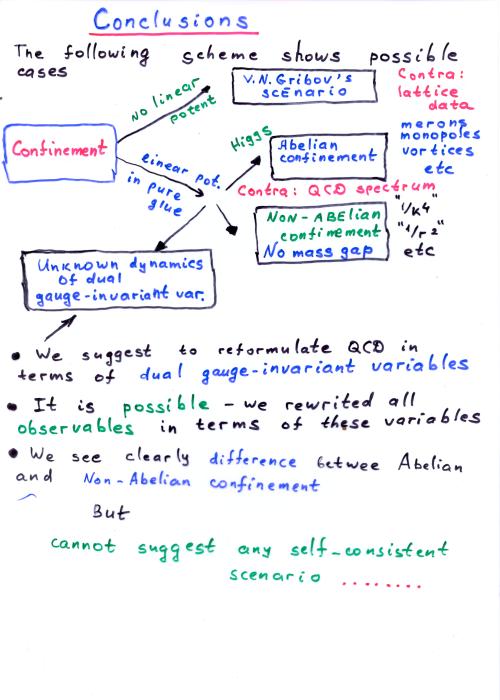 Conclusions
The following scheme shows possible
cases
Confinement
No linear
potent
V.N. Gribov's
scEnario
Contra:
lattice
data
linear pot.
in pure
glue
Higgs
Abelian
confinement
merons
monopoles
vortices
etc
Contra: QCD spectrum
Non-Abelian
confinement
No mass gap
"1/k4"
"1/r2"
etc
Unknown dynamics
of dual
gauge-invariant var.
• We suggest to reformulate QCD in
terms of dual gauge-invariant variables
• It is possible - we rewrited all
observables in terms of these variables
• We see clearly difference betwee Abelian
and Non-Abelian confinement
But
cannot suggest any self-consistent
scenario ........